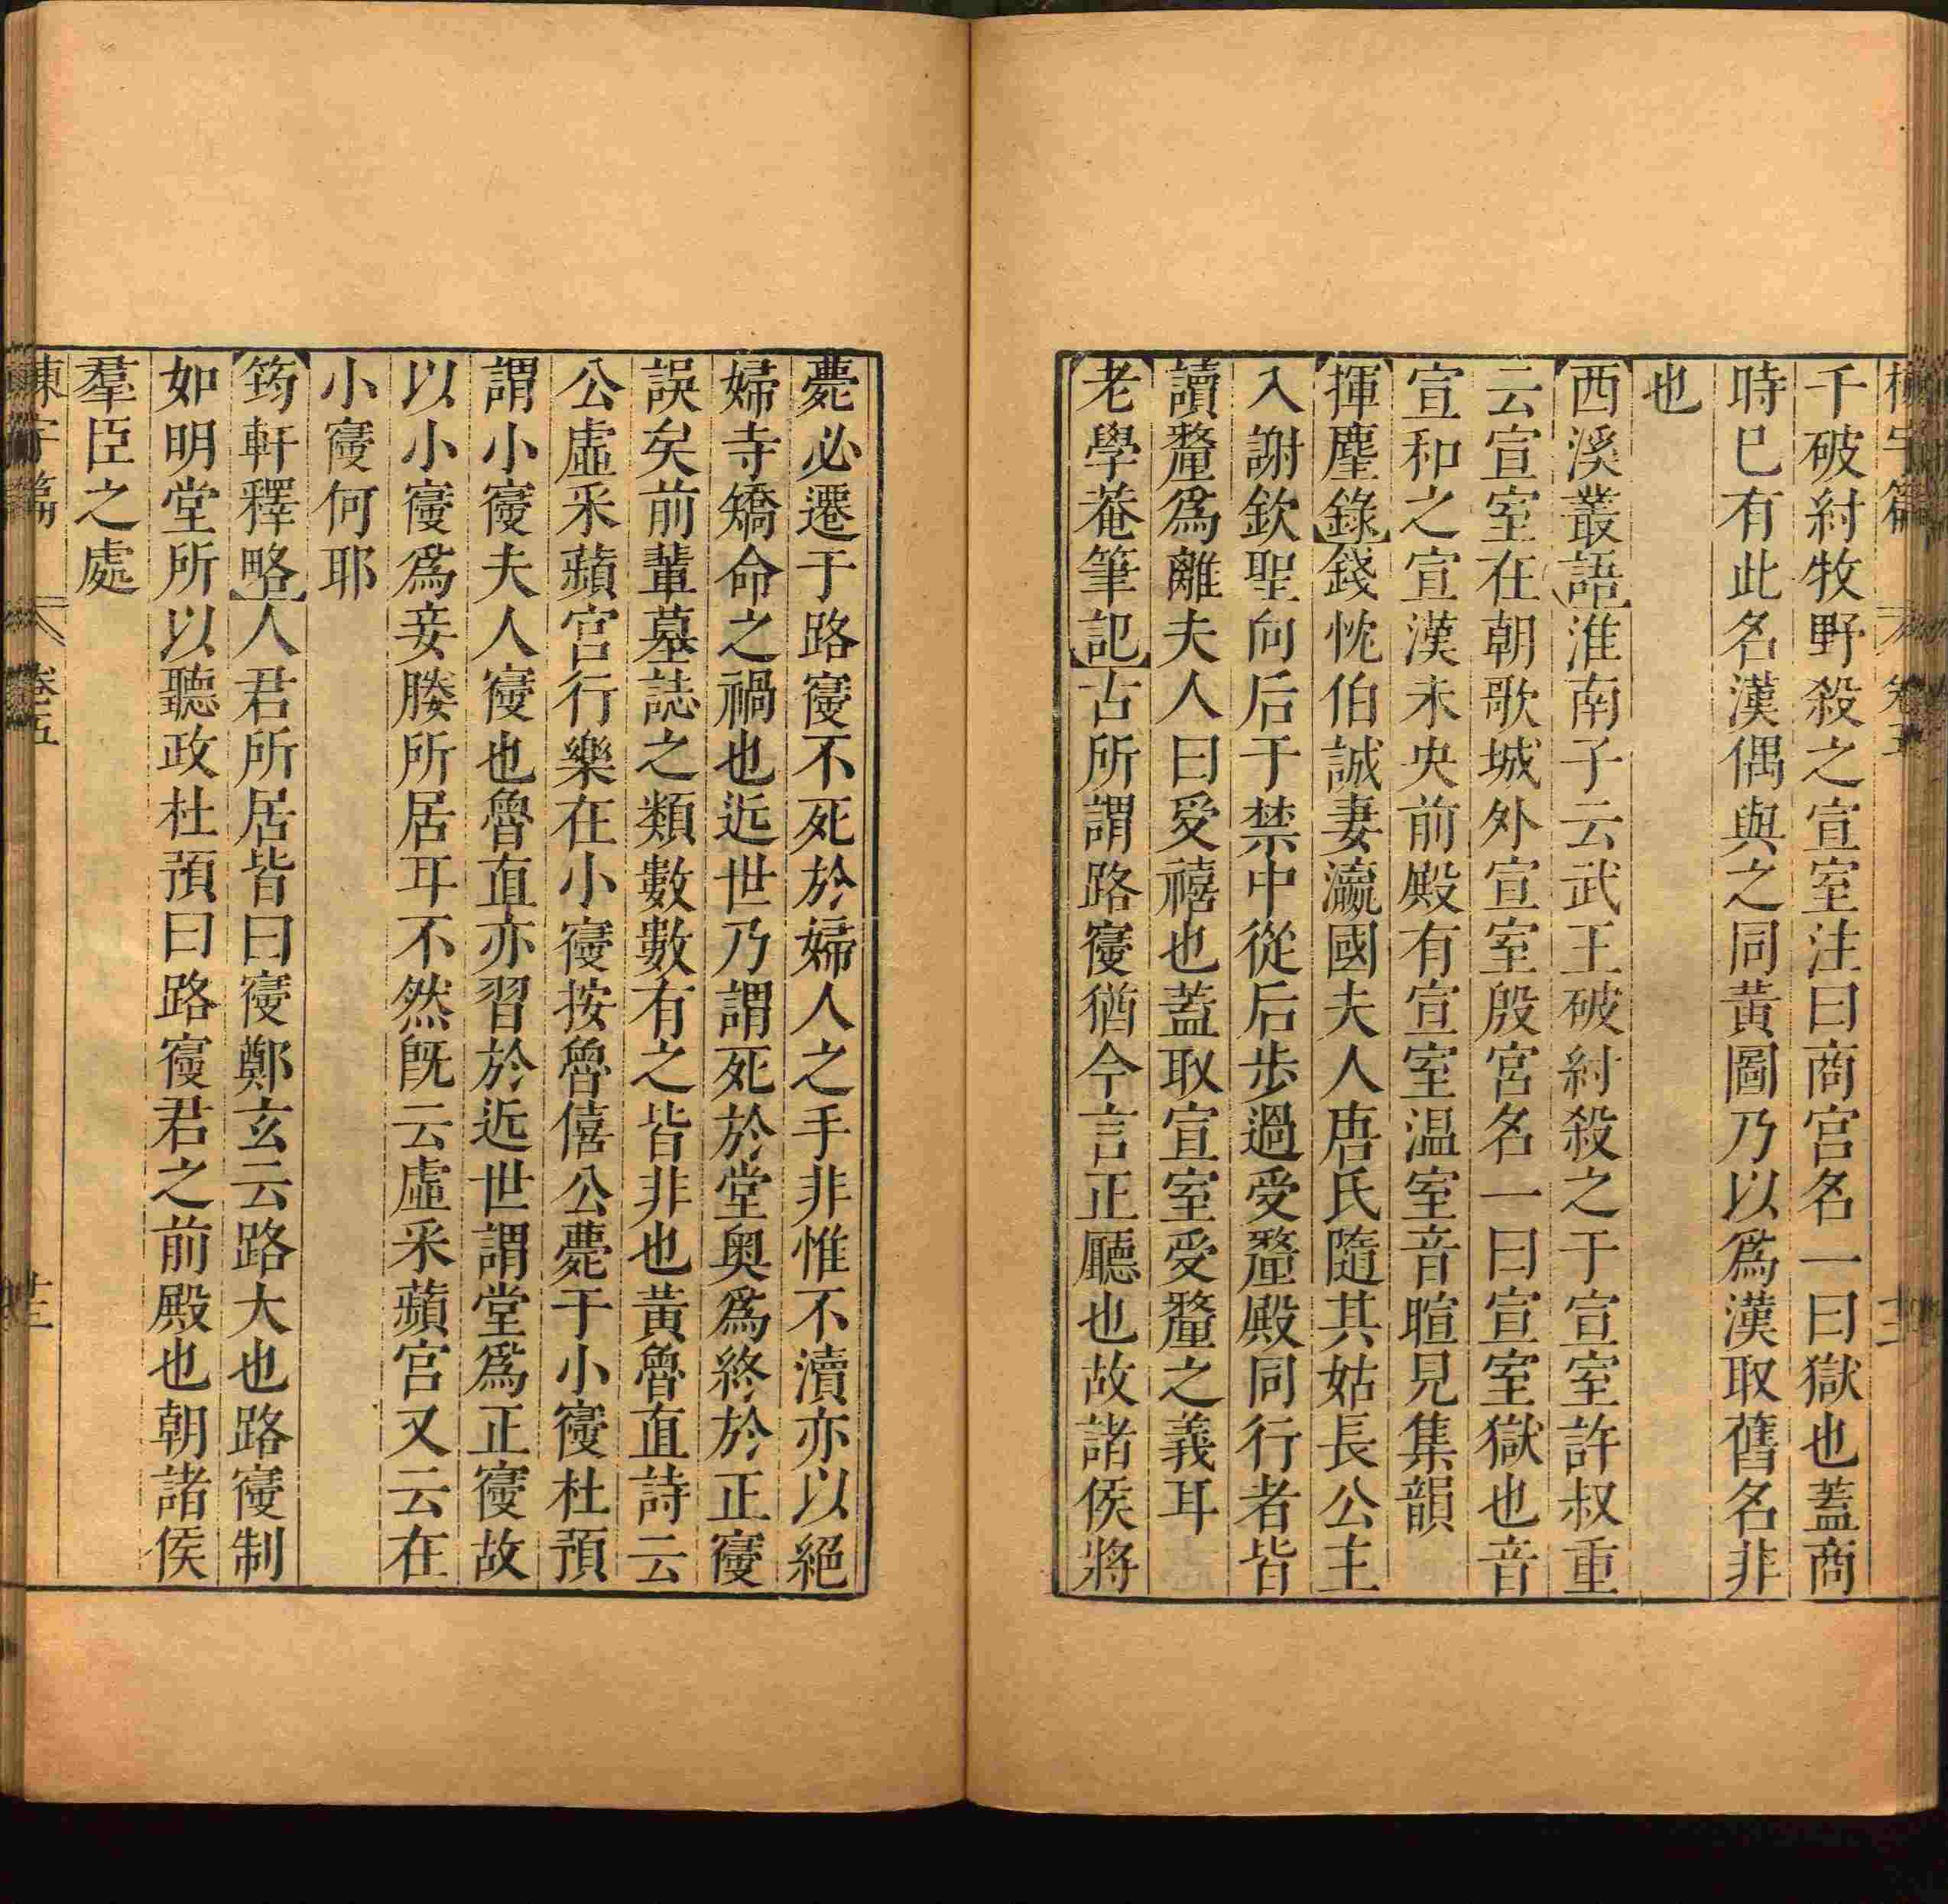 千破紂牧野殺之宣室注曰商宮名一曰獄也蓋商
時巳有此名漢偶與之同黃圖乃以爲漢取舊名非
也
西溪叢語淮南子云武王破紂殺之于宣室許叔重
云宣室在朝歌城外宣室殷宮名一曰宣室獄也音
宣和之宣漢未央前殿有宣室温室音暄見集韻
揮麈錄錢忱伯誠妻瀛國夫人唐氏隨其姑長公主
入謝欽聖向后于禁中從后步過受釐殿同行者皆
讀釐爲離夫人曰受禧也蓋取宣室受釐之義耳
老學菴筆記古所謂路寢猶今言正廳也故諸侯將
薨必遷于路寢不死於婦人之手非惟不瀆亦以絕
婦寺矯命之禍也近世乃謂死於堂奥爲終於正寢
誤矣前輩墓誌之類數數有之皆非也黃魯直詩云
公虛釆蘋宮行樂在小寢按魯僖公薨于小寢杜預
謂小寢夫人寢也魯直亦習於近世謂堂爲正寢故
以小寢爲妾媵所居耳不然旣云虛釆蘋宮又云在
小寢何耶
筠軒釋略人君所居皆曰寢鄭玄云路大也路寢制
如明堂所以聽政杜預曰路寢君之前殿也朝諸侯
羣臣之處
卷五